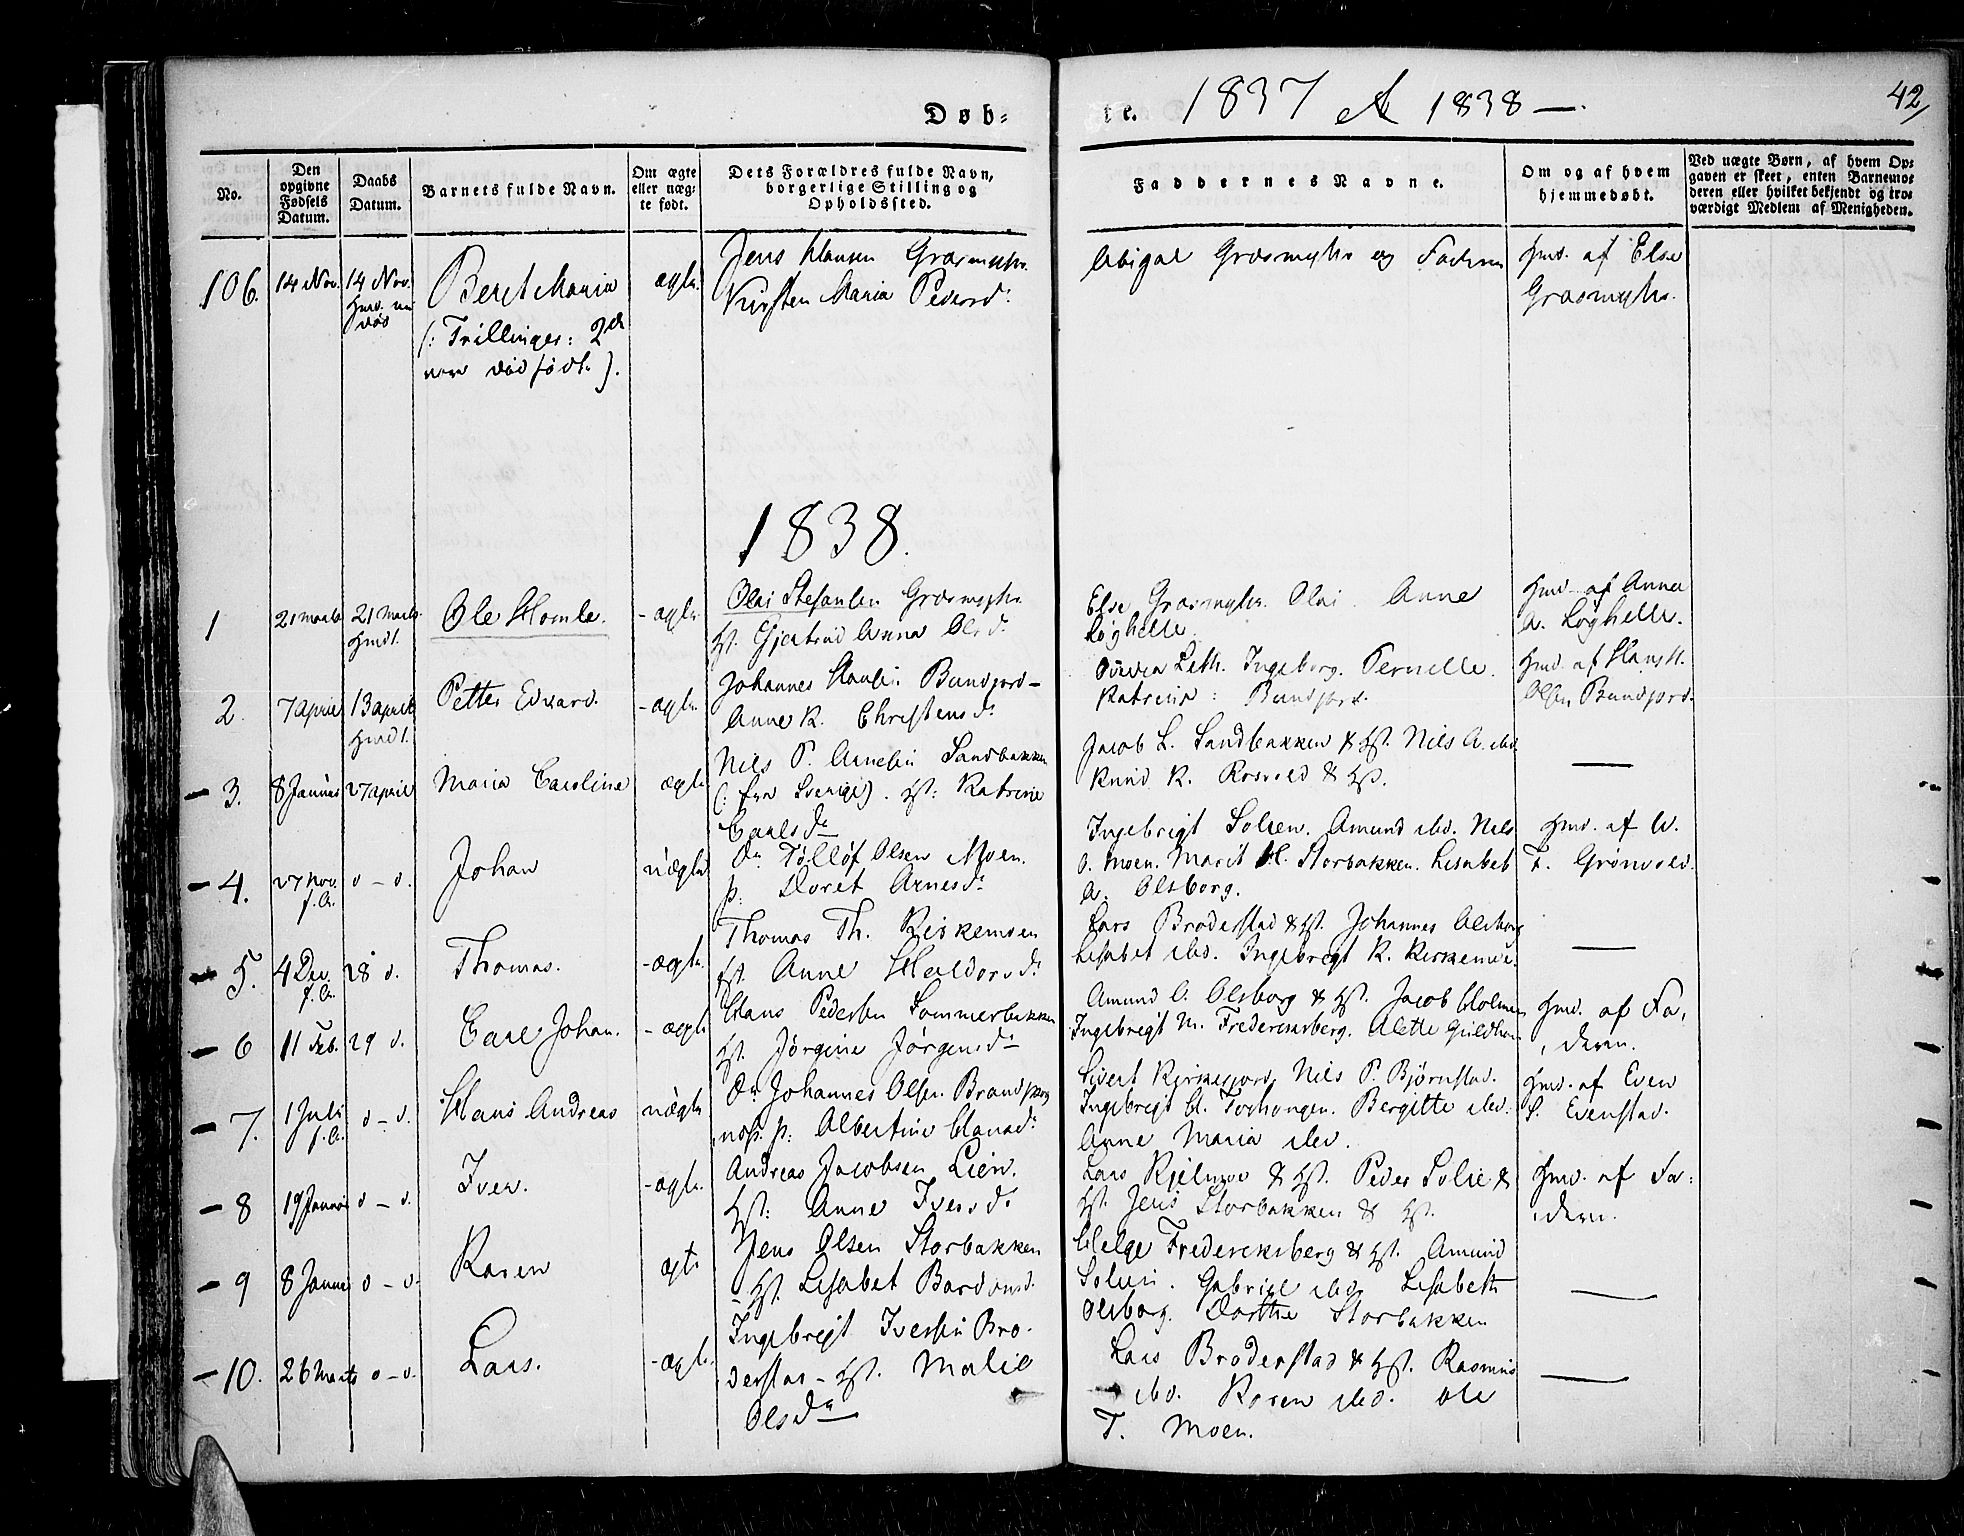 Døb-
te. 1837 & 1838 —.
42/
No.
Den opgivne Fødsels Datum.
Daabs Datum.
Barnets fulde Navn.
Om ægte eller uæg-te født.
Dets Forældres fulde Navn, borgerlige Stilling og Opholdssted.
Faddernes Navne.
Om og af hvem hjemmedøbt.
Ved uægte Børn, af hvem Op-
gaven er skeet, enten Barnemo-
deren eller hvilket bekjendt og tro-
værdigt Medlem af Menigheden.
106. 14 Nov. 14 Nov. Beret Maria ægte.
(: Trillinger: 2de
vare dødfødte ).
Jens Hansen Græsmyhr
Kirsten Maria Pedersd.
Abigael Græsmyhr og Faderen
Hmd. af Else
Græsmyhr.
1838.
1 21 Marts 21 Marts Hmdt. Ole Homle. - ægte.
Olai Stefansen Græsmyhr
Hst. Gjertrud Anna Olsd.
Else Græsmyhr. Olai. Anne
Løghelle.
Hmd. af Anna
A. Løghelle.
2. 7 April 13 April Hmdt. Petter Edvard. - ægte.
Johannes Hansen Bundjord -
Anne K. Christensd.
Leth. Ingeborg. Pernelle.
Katrina: Bundjord.
Hmd. af Hans H.
Olsen Bundjord.
- 3. 8 Januar 27 April Maria Caroline ægte
Nils P. Arnesen Sandbakken
(: fra Sverige). Hst: Katrine
Carlsd.
Jacob L. Sandbakken & Hst. Nils A. ibd.
Knud K. Rosvold & Hst.
—
- 4. 27 Nov. f. A. o - o. Johan uægte
Tølløf Olsen Moen.
p: Doret Arnesd.
Ingebrigt Solien. Amund ibd. Nils
O. Moen. Marit H. Storbakken. Lisabet
A. Olsborg.
Hmd. af
T. Grønvold.
- 5. 4 Dec. f. A. 28 o. Thomas. - ægte.
Thomas Th. Kirkemoen
Hst. Anne Haldorsd.
Lars Broderstad & Hst. Johannes Olsborg
Lisabet ibd. Ingebrigt K. Kirkemoe.
—
- 6 11 Feb. 29 o. Carl Johan. - ægte
Hans Pedersen Sommerbakken
Hst. Jørgine Jørgensd.
Amund O. Olsborg & Hst. Jacob Holmen
Ingebrigt M. Frederiksberg. Alette Guldhav
Hmd. af Fa-
deren.
- 7. 1 Juli f. A. o - o. Hans Andreas uægte
Johannes Olsen
p: Albertine Hansd.
Sivert Kirkesjord Nils P. Bjørnstad.
Ingebrigt H. Bergitte ibd.
Anne Maria ibd.
Hmd. af Even
S. Evenstad.
- 8 19 Januar o - o. Iver. - ægte.
Andreas Jacobsen Lien.
Hst: Anne Iversd.
Lars Kjelmoe & Hst. Peder Solie &
Hst. Jens Storbakken & Hst.
Hmd. af Fa-
deren.
- 9 8 Januar o - o. Karen ægte
Jens Olsen Storbakken
- Hst Lisabet Bardonsd.
Helge Frederiksberg & Hst. Amund
Solien. Gabriel ibd. Lisabeth
Olsborg. Dorthe Storbakken
—
- 10. 26 Marts o - o. Lars. - ægte.
Ingebrigt Iversen Bro-
derstad - Hst. Malie
Olsd.
Lars Broderstad & Hst. Rasmus
ibd. Karen ibd. Ole
T. Moen.
—